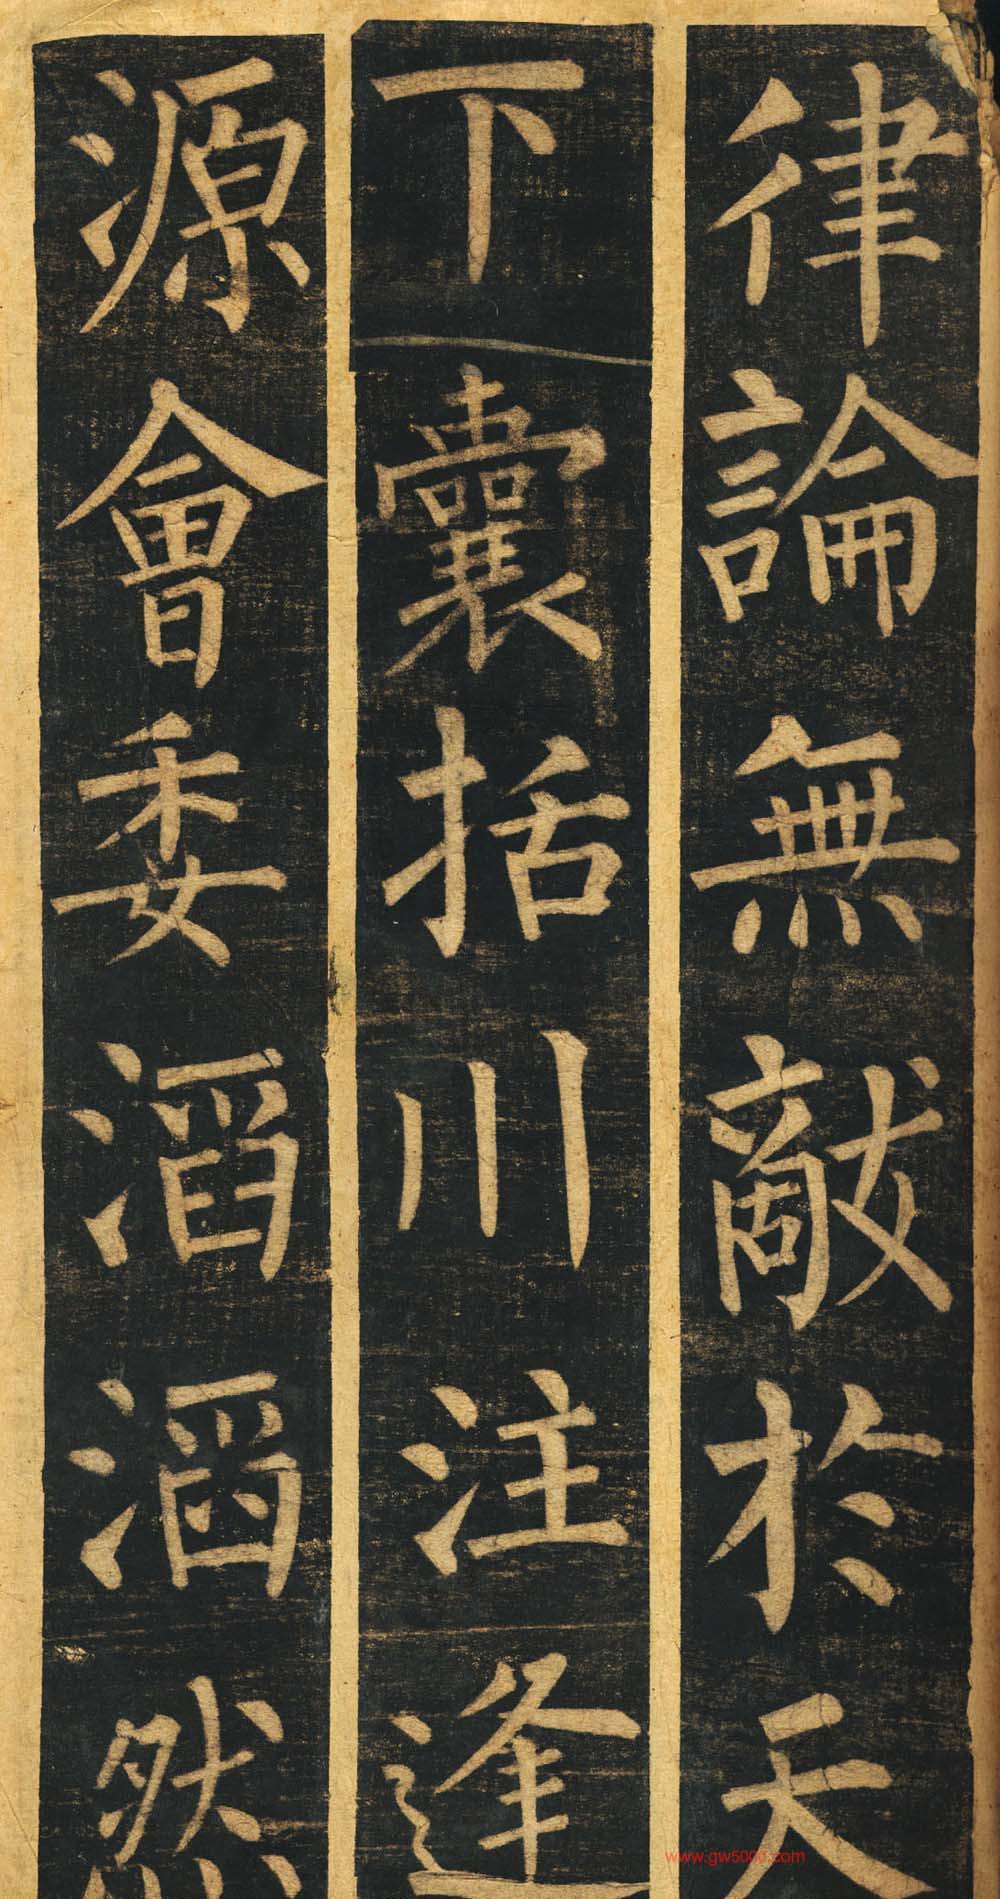 律論無敵於天
下囊括川注逢
源會委滔滔然
www.gw5000.com